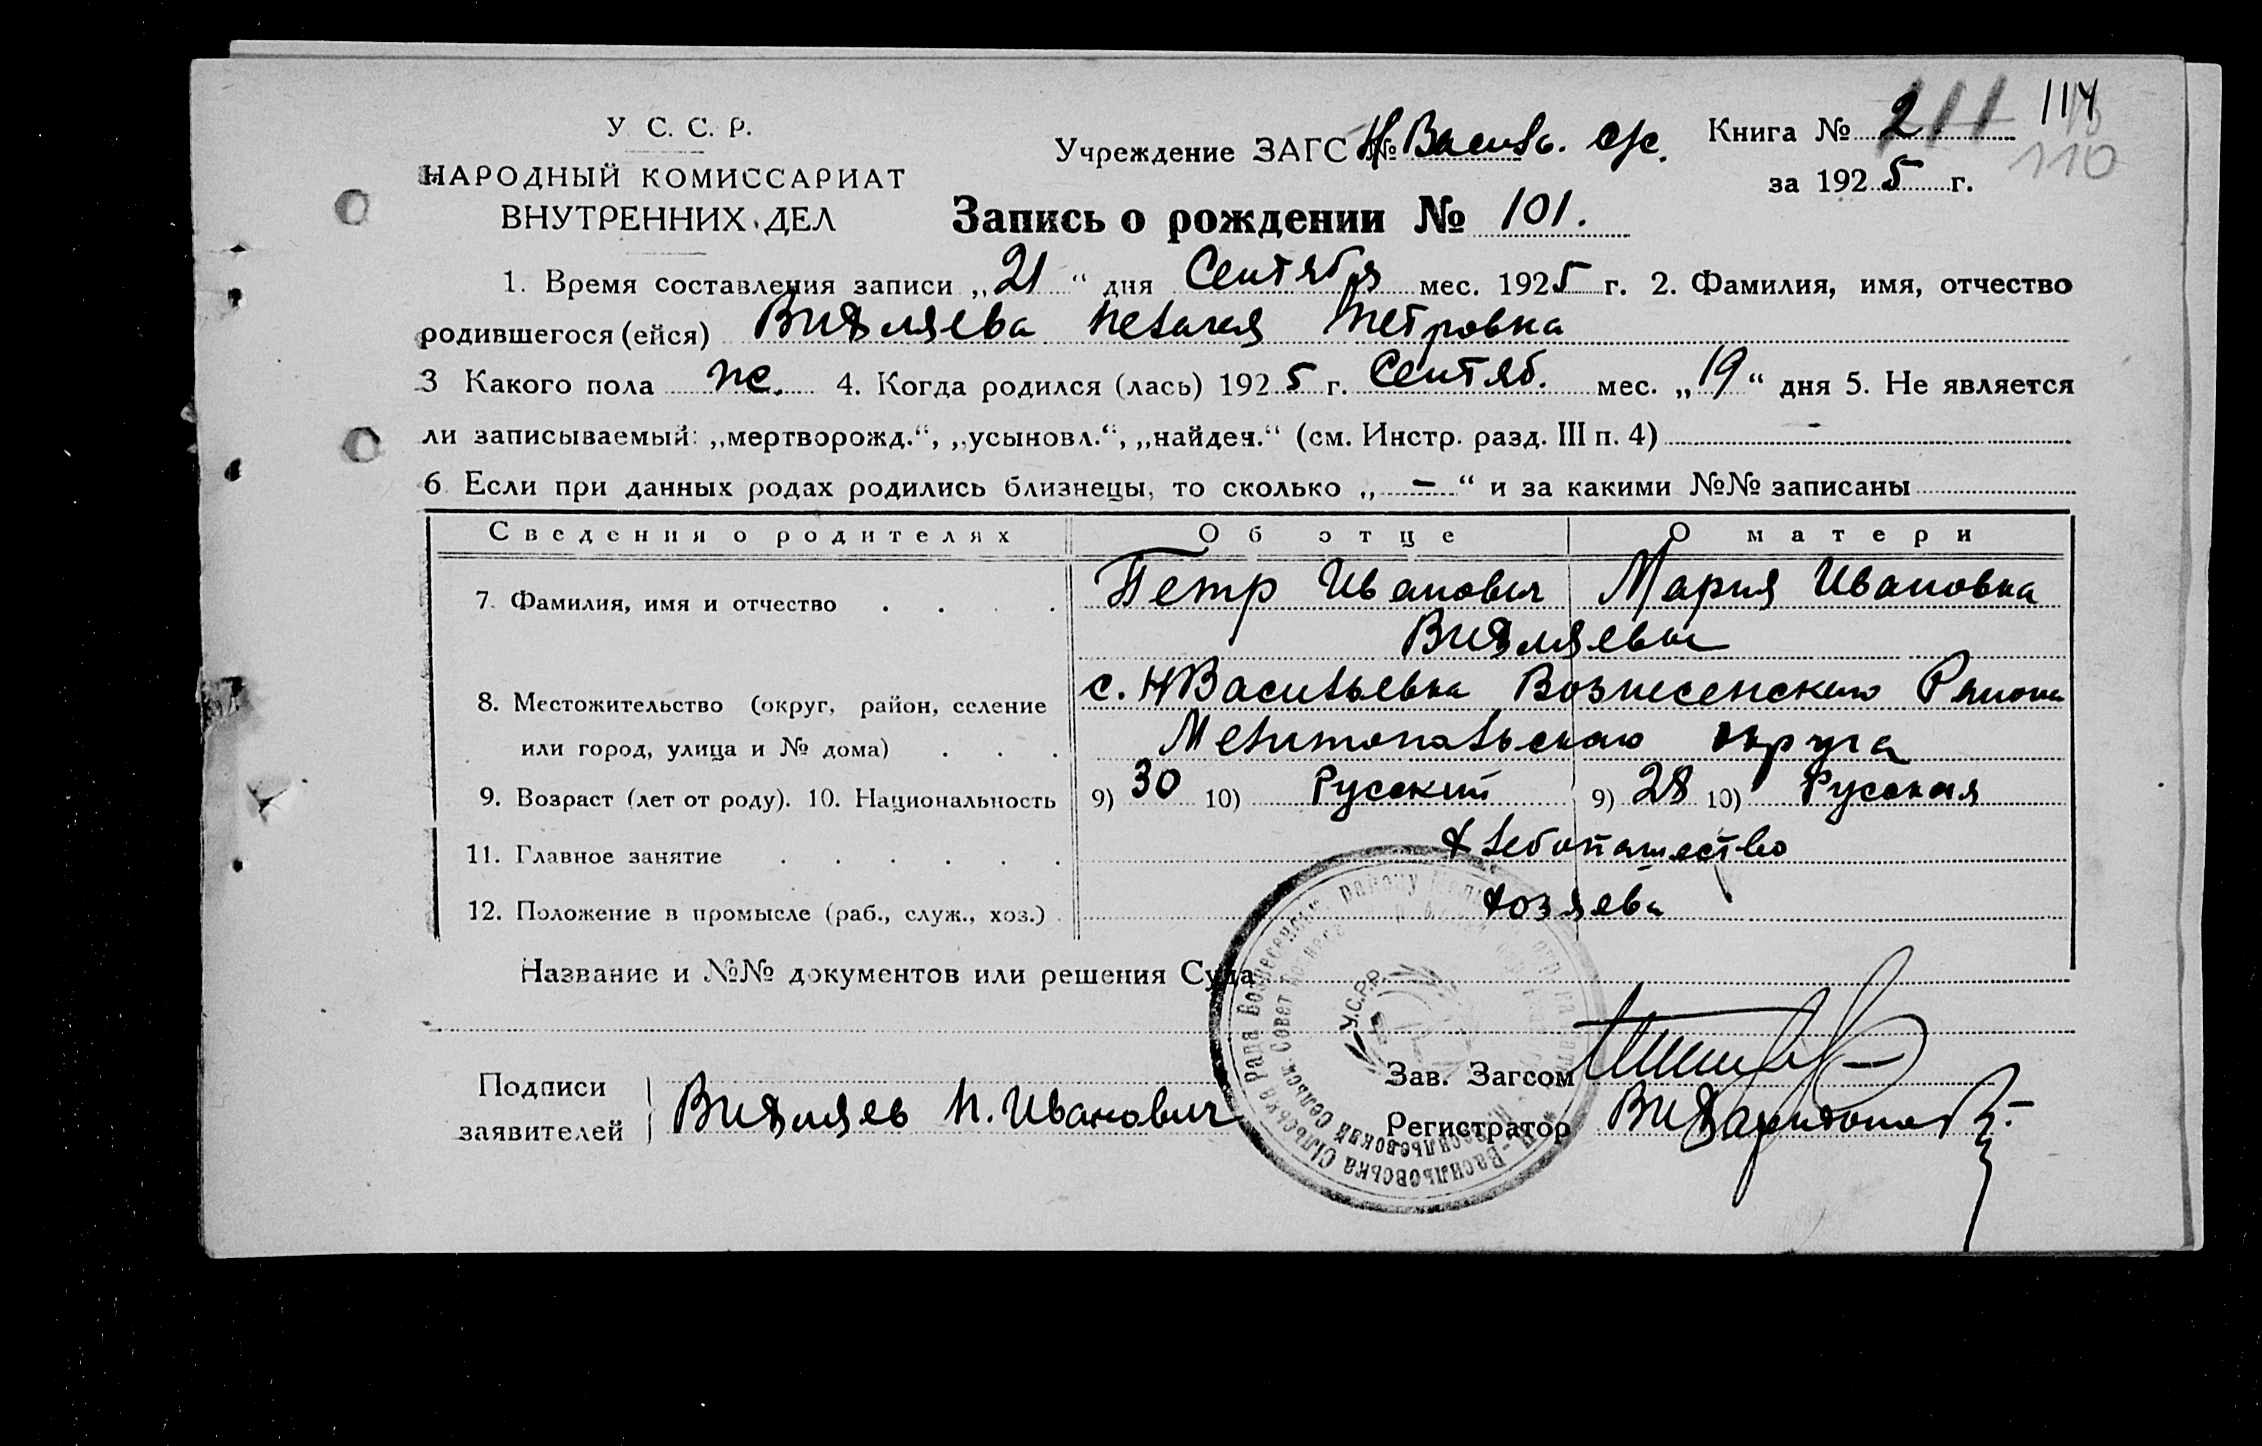 У С. С. Р.
НАРОДНЫЙ КОМИССАРИАТ
ВНУТРЕННИХ ДЕЛ
Учреждение ЗАГС № Н Василь. с/с.
Книга № 2 111 114
110
за 1925 г.
Запись о рождении № 101.
1. Время составления записи „21“ дня Сентября мес. 1925 г. 2. Фамилия, имя, отчество
родившегося (ейся) Видиляева Пелагея Петровка
3 Какого пола же. 4. Когда родился (лась) 1925 г. Сентяб. мес. „19“ дня 5. Не является
ли записываемый: „мертворожд.“, „усыновл.“, „найден.“ (см. Инстр. разд. III п. 4) -
6 Если при данных родах родились близнецы, то сколько „-“ и за какими №№ записаны
Сведения о родителях Об отце О матери
7. Фамилия, имя и отчество Петр Иванович Мария Ивановка
8. Местожительство (округ, район, селение с. Н Васильевка Вознесенского Района
или город, улица и № дома) Мелитопольского округа
9. Возраст (лет от роду). 10. Национальность 9) 30 10) Русский 9) 28 10) Русская
11. Главное занятие Хлебопашество
12. Положение в промысле (раб., служ., хоз.) Хозяева
Название и №№ документов или решения Суда
Подписи
заявителей П. Иванович
Зав. Загсом
Регистратор
У.С.Р.Р.